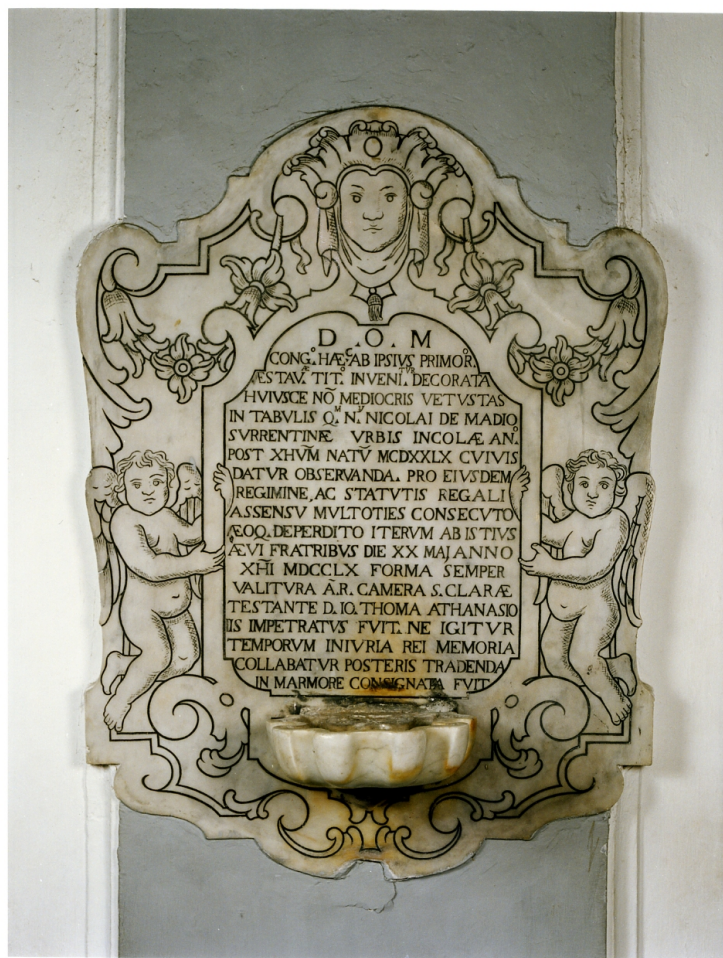 D . O . M
CONG.º HÆC AB IPSIVS PRIMOR.º
ÆSTAV. TIT.º INVENI.TVR DECORATA
HVIVSCE NÕ MEDIOCRIS VETVSTAS
IN TABVLIS Q.M N.V NICOLAI DE MADIO
SVRRENTINÆ VRBIS INCOLÆ AN.º
POST XHVM̃ NATV̄ MCDXXLX CVIVIS
DATVR OBSERVANDA. PRO EIVSDEM
REGIMINE, AC STATVTIS REGALI
ASSENSV MVLTOTIES CONSECVTO
ÆOQ. DEPERDITO ITERVM AB ISTIVS
ÆVI FRATRIBVS DIE XX MAJ ANNO
XH̃I MDCCLX FORMA SEMPER
VALITVRA Ã.R. CAMERA S. CLARÆ
TESTANTE D. IO. THOMA ATHANASIO
IIS IMPETRATVS FVIT. NE IGITVR
TEMPORVM INIVRIA REI MEMORIA
COLLABATVR POSTERIS TRADENDA
IN MARMORE CONSIGNATA FVIT